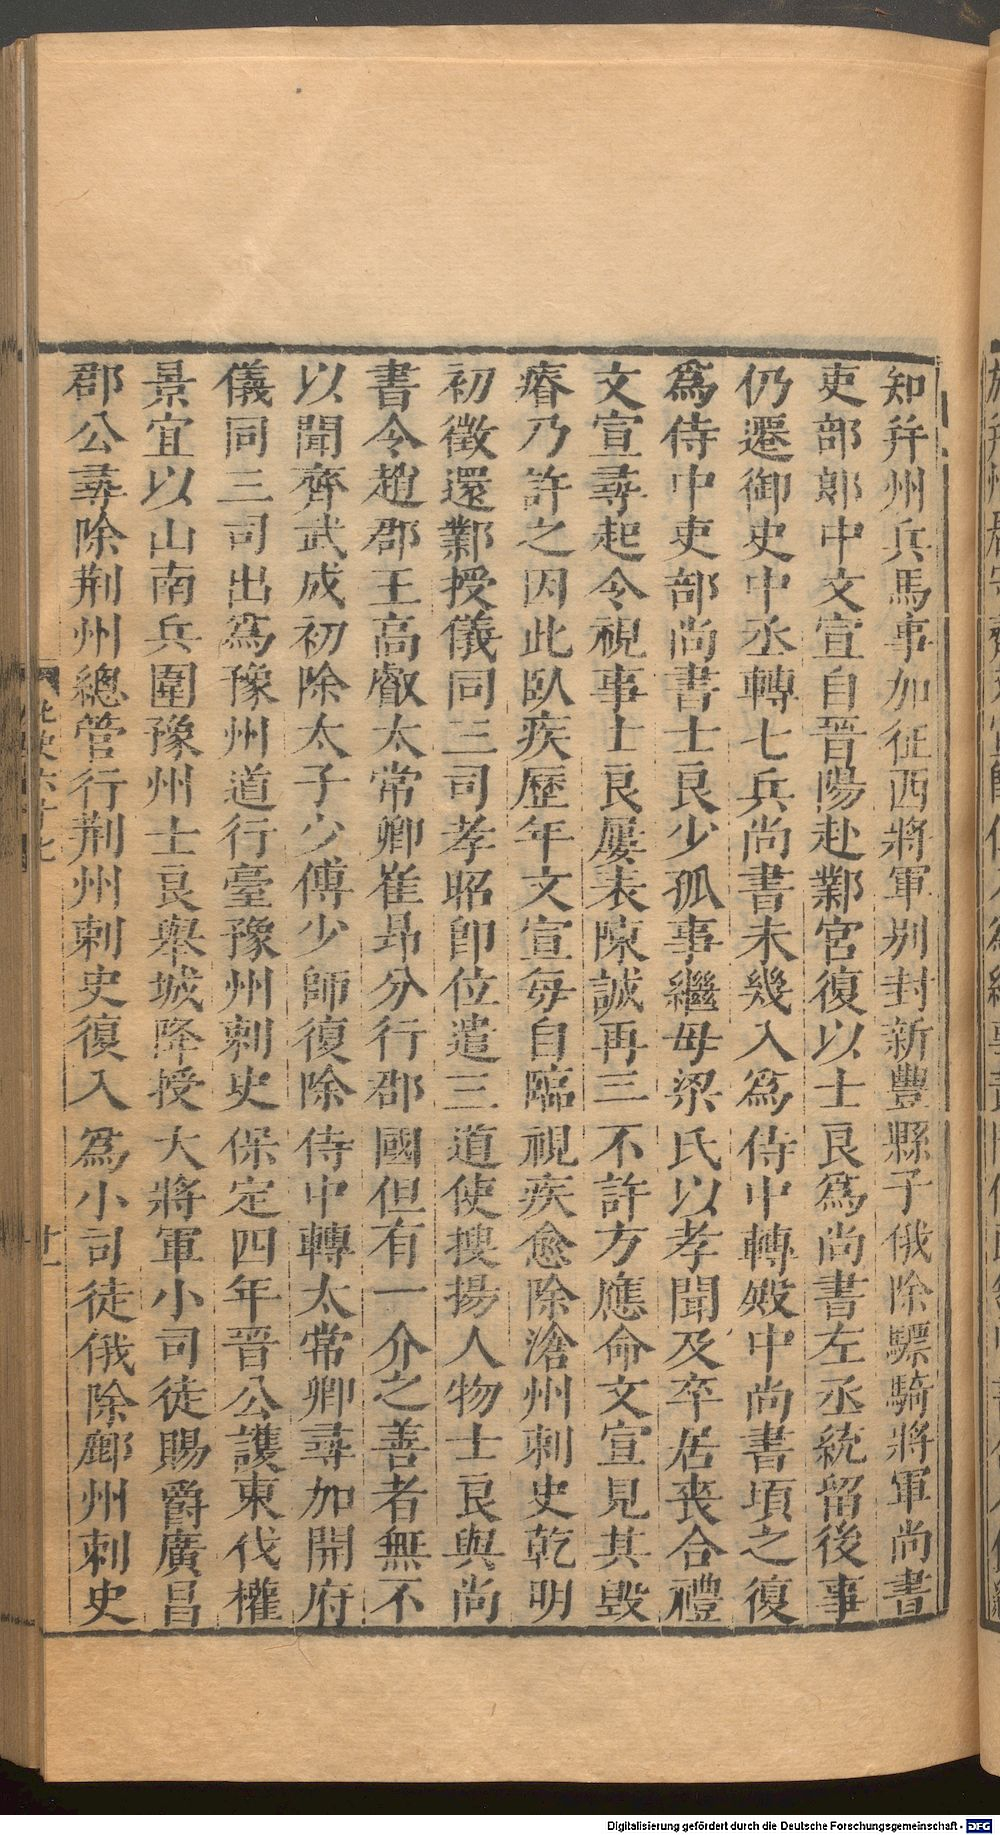 知并州兵馬事加征西將軍别封新豐縣子俄除驃騎將軍尚書
吏部郎中文宣自晉陽赴鄴宮復以士良爲尚書左丞統留後事
仍遷御史中丞轉七兵尚書未幾入爲侍中轉殿中尚書頃之復
爲侍中吏部尚書士良少孤事繼母梁氏以孝聞及卒居喪合禮
文宣尋起令視事士良屢表陳誠再三不許方應命文宣見其毀
瘠乃許之因此臥疾歷年文宣每自臨視疾愈除滄州刺史乾明
初徵還鄴授儀同三司孝昭卽位遣三道使搜揚人物士良與尚
書令趙郡王高叡太常卿崔昂分行郡國但有一介之善者無不
以聞齊武成初除太子少傅少師復除侍中轉太常卿尋加開府
儀同三司出爲豫州道行臺豫州刺史保定四年晉公護東伐權
景宜以山南兵圍豫州士良舉城降授大將軍小司徒賜爵廣昌
郡公尋除荆州總管行荆州刺史復入爲小司徒俄除鄜州刺史
北史六十七
廿一
Digitalisierung gefördert durch die Deutsche Forschungsgemeinschaft - DFG